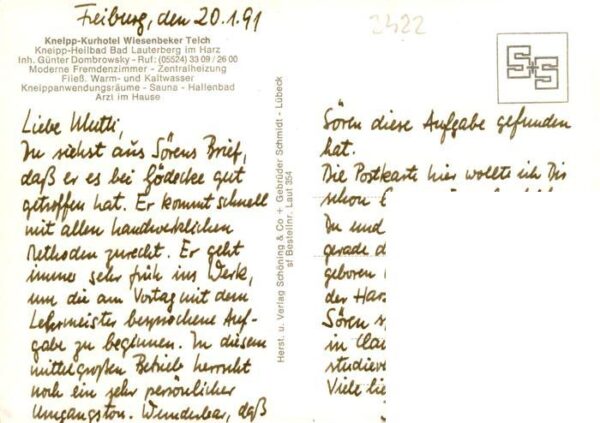 Freiburg, den 20.1.91
3422
Kneipp-Kurhotel Wiesenbeker Teich
Kneipp-Heilbad Bad Lauterberg im Harz
Inh. Günter Dombrowsky - Ruf: (05524) 33 09 / 26 00
Moderne Fremdenzimmer - Zentralheizung
Fließ. Warm- und Kaltwasser
Kneippanwendungsräume - Sauna - Hallenbad
Arzt im Hause
Liebe Mutti,
Du siehst aus Sörens Brief,
daß er es bei Gödecke gut
getroffen hat. Er kommt schnell
mit allen handwerklichen
Methoden zurecht. Er geht
immer sehr früh ins Werk,
um die am Vortag mit dem
Lehrmeister besprochene Auf-
gabe zu beginnen. In diesem
mittelgroßen Betrieb herrscht
noch ein sehr persönlicher
Umgangston. Wunderbar, daß
Herst. u. Verlag Schöning & Co + Gebrüder Schmidt - Lübeck
sf Bestellnr. Laut 354
S+S
Sören diese Aufgabe gefunden
hat.
Die Postkarte hier wollte ich Dir
schon
Du und
gerade
geboren
der Harz
Sören
in
Viele